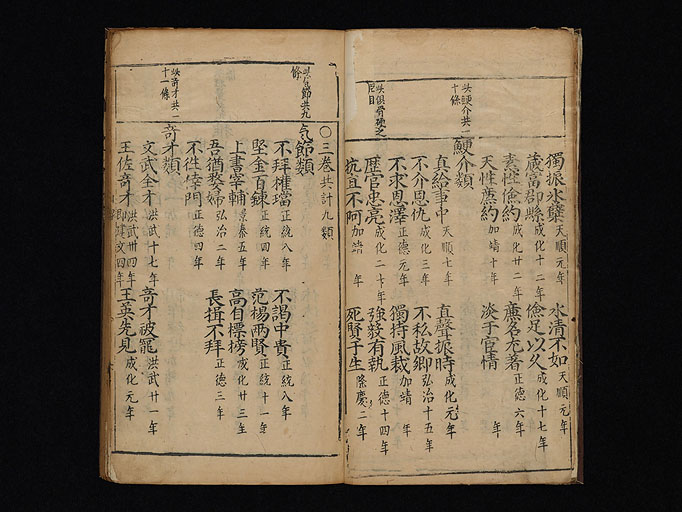 獨振氷蘗 天順元年 水清不如 天順元年
廉富郡縣 成化十二年 儉足以久 成化十七年
素性儉約 成化廿二年 廉名尤著 正德六年
天性廉約 加靖十年 淡于官情 年
鯁介類
共鯁介共一十條
真給事中 天順七年 直聲振時 成化元年
不介恩仇 成化三年 不私故鄉 弘治十五年
不求恩澤 正德元年 獨持風裁 加靖 年
歷官忠亮 成化二十年 強毅有執 正德十四年
抗直不阿 加靖 年 死賢于生 隆慶二年
〇三卷共計九類
氣節類
共氣節共九條
不拜權璫 正統八年 不謁中貴 正統八年
堅金百鍊 正統四年 范楊兩賢 正統十一年
上書宰輔 景泰五年 高自標榜 成化廿三年
吾猶嫠婦 弘治二年 長揖不拜 正德三年
不徃宰門 正德四年
奇才類
共奇才共一十一條
文武全才 洪武十七年 奇才被罷 洪武廿一年
王佐奇才 洪武廿四年 王英先見 成化元年